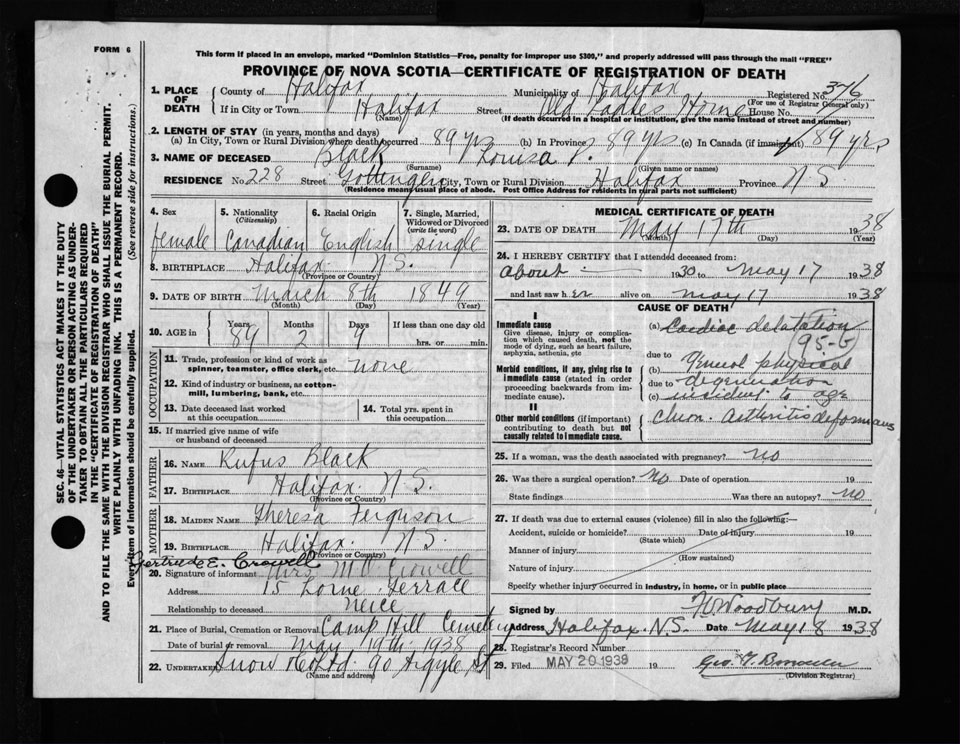 FORM 6
This form if placed in an envelope, marked "Dominion Statistics—Free, penalty for improper use $300," and properly addressed will pass through the mail "FREE"
PROVINCE OF NOVA SCOTIA—CERTIFICATE OF REGISTRATION OF DEATH
SEC. 46—VITAL STATISTICS ACT MAKES IT THE DUTY
OF THE UNDERTAKER OR PERSON ACTING AS UNDER-
TAKER TO OBTAIN ALL THE PARTICULARS REQUIRED
IN THE "CERTIFICATE OF REGISTRATION OF DEATH"
AND TO FILE THE SAME WITH THE DIVISION REGISTRAR WHO SHALL ISSUE THE BURIAL PERMIT.
WRITE PLAINLY WITH UNFADING INK. THIS IS A PERMANENT RECORD.
Every item of information should be carefully supplied. (See reverse side for instructions.)
1. PLACE OF DEATH
County of Halifax Municipality of Halifax Registered No. 376
(For use of Registrar General only)
If in City or Town Halifax Street Old Ladies Home House No.
(Name) (If death occurred in a hospital or institution, give the name instead of street and number)
2. LENGTH OF STAY (in years, months and days)
(a) In City, Town or Rural Division where death occurred 89 yrs (b) In Province 89 yrs (c) In Canada (if immigrant) 89 yrs
3. NAME OF DECEASED Black Louisa J.
(Surname) (Given name or names)
RESIDENCE No. 228 Street Gottingen City, Town or Rural Division Halifax Province N S
(Residence means usual place of abode. Post Office Address for residents in rural parts not sufficient)
4. Sex 5. Nationality (Citizenship) 6. Racial Origin 7. Single, Married, Widowed or Divorced (write the word)
female Canadian English single
8. BIRTHPLACE Halifax N S.
(Province or Country)
9. DATE OF BIRTH March 8th 1849
(Month) (Day) (Year)
10. AGE in Years Months Days If less than one day old
89 2 9 hrs. or min.
OCCUPATION
11. Trade, profession or kind of work as
spinner, teamster, office clerk, etc. none
12. Kind of industry or business, as cotton-
mill, lumbering, bank, etc.
13. Date deceased last worked at this occupation
14. Total yrs. spent in this occupation
15. If married give name of wife
or husband of deceased
FATHER
16. NAME Rufus Black
17. BIRTHPLACE Halifax N S.
(Province or Country)
MOTHER
18. MAIDEN NAME Theresa Ferguson
19. BIRTHPLACE Halifax. N S.
(Province or Country)
Gertrude E. Crowell
20. Signature of informant Mrs M O Crowell
Address 15 Lorne Terrace
Relationship to deceased Neice
21. Place of Burial, Cremation or Removal Camp Hill Cemetery
Date of burial or removal May 19th 1938
22. UNDERTAKER Snow & Co Ltd 90 Argyle St
(Name and address)
MEDICAL CERTIFICATE OF DEATH
23. DATE OF DEATH May 17th 1938
(Month) (Day) (Year)
24. I HEREBY CERTIFY that I attended deceased from:
about 1930 to May 17 1938
and last saw her alive on May 17 1938
CAUSE OF DEATH
I
Immediate cause
Give disease, injury or complication which caused death, not the mode of dying, such as heart failure, asphyxia, asthenia, etc
(a) Cardiac delatation
95-b
due to
Morbid conditions, if any, giving rise to immediate cause (stated in order proceeding backwards from immediate cause).
(b) General physical
due to degeneration
(c) incident to age
II
Other morbid conditions (if important) contributing to death but not causally related to immediate cause.
Chron. arthritis deformans
25. If a woman, was the death associated with pregnancy? no
26. Was there a surgical operation? No Date of operation 19
State findings Was there an autopsy? no
27. If death was due to external causes (violence) fill in also the following:—
Accident, suicide or homicide? Date of 19
(State which)
Manner of injury
(How sustained)
Nature of injury
Specify whether injury occurred in industry, in home, or in public place
Signed by Woodbury M.D.
Address Halifax N.S. Date May 18 1938
28. Registrar's Record Number
29. Filed MAY 20 1938 19
(Division Registrar)